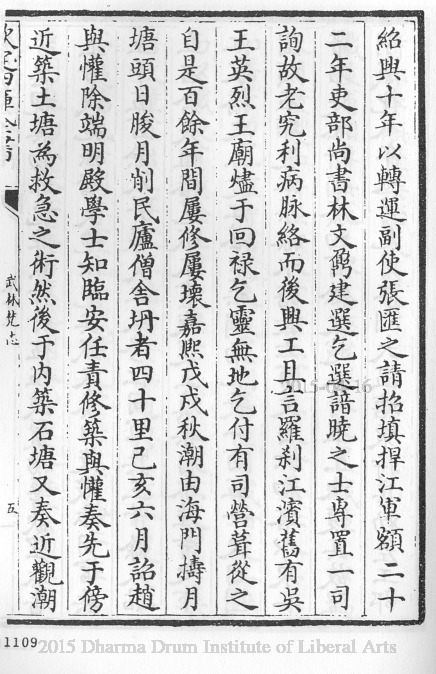 紹興十年以轉運副使張匯之請招填捍江軍額二十
二年吏部尚書林文鼐建選乞選諳曉之士專置一司
詢故老究利病脉絡而後興工且言羅刹江濱舊有吳
王英烈王廟燼于回禄乞靈無地乞付有司營葺從之
自是百餘年間屢修屢壞嘉熙戊戌秋潮由海門擣月
塘頭日朘月削民廬僧舍坍者四十里己亥六月詔趙
與懽除端明殿學士知臨安任責修築與懽奏先于傍
近築土塘為救急之術然後于内築石塘又奏近觀潮
武林梵志
五
1109
2015 Dharma Drum Institute of Liberal Arts